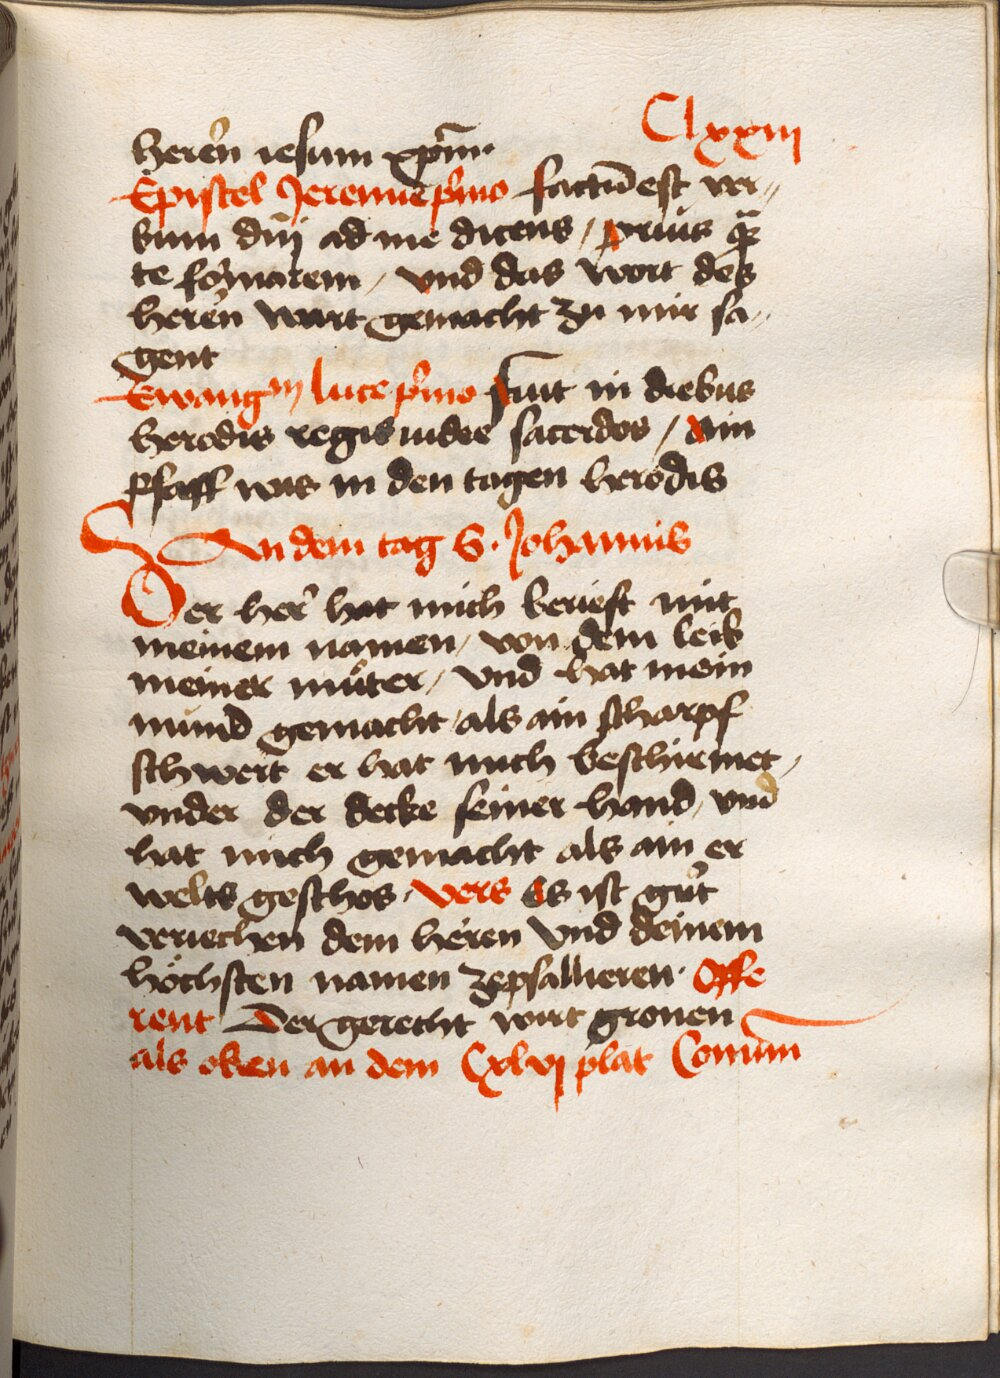 Clxxiii
heren iesum xp̄m·
Epistel Jeremie p̓mo factū est ver-
bum dn̄i ad me dicens / prius q̄
te formarem / vnd das wort des
heren wart gemacht zu mir sa-
gent
Ewangm luce p̓mo fuit in diebus
herodis regis iudee sacerdos / ain
pfaff was in den tagen herodis
An dem tag S. Johannis
Der her̓ hat mich berieft mit
meinem namen / von dem leib
meiner můter / vnd hat mein
mund gemacht / als ain scharpf
schwert er hat mich beschirmet /
vnder der decke seiner hand / vnd
hat mich gemacht als ain er
welts geschos · vers Es ist gůt
veriechen dem heren vnd deinem
höchsten namen zepsallieren · Offe
rent Der gerecht wirt gronen
als oben an dem Cxlvj plat Comūn